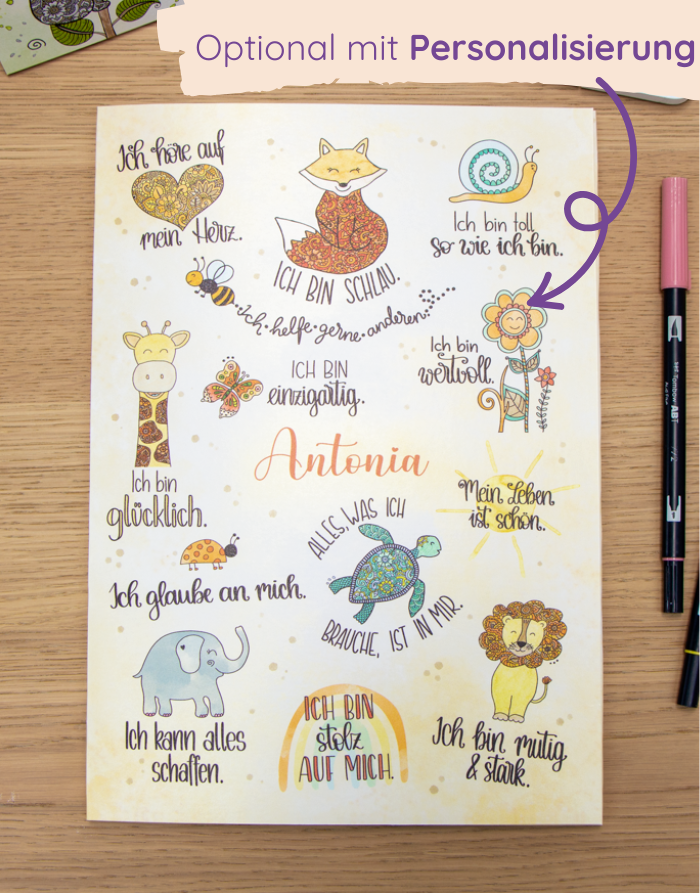 Optional mit Personalisierung
Ich höre auf
mein Herz.
ICH BIN SCHLAU.
Ich bin toll,
so wie ich bin.
Ich·helfe·gerne·anderen
Ich bin
wertvoll.
ICH BIN
einzigartig.
Antonia
Ich bin
glücklich.
Mein Leben
ist schön.
ALLES, WAS ICH
BRAUCHE, IST IN MIR.
Ich glaube an mich.
Ich kann alles
schaffen.
ICH BIN
stolz
AUF MICH.
Ich bin mutig
& stark.
ABT